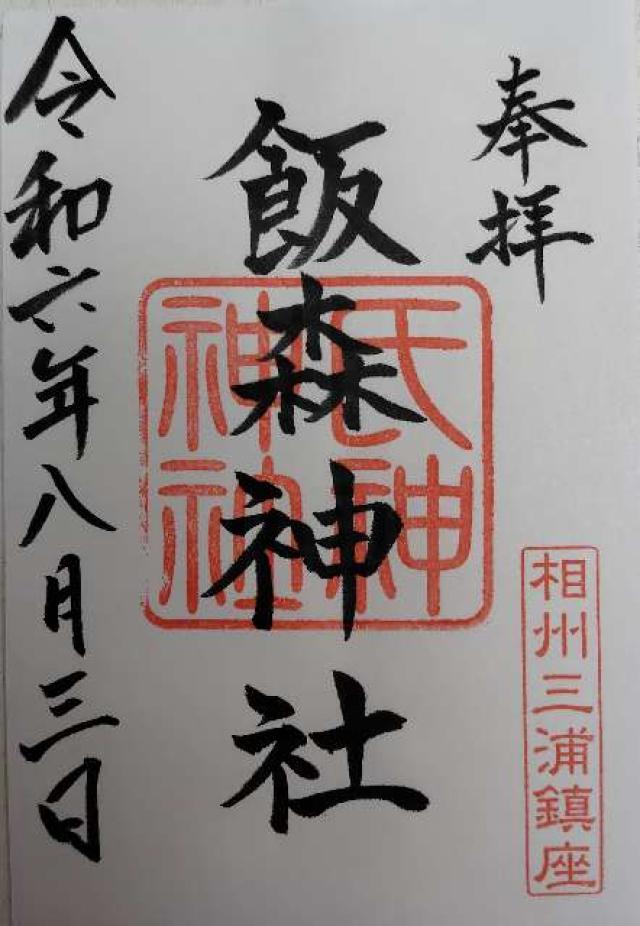 奉拝
相州三浦鎮座
飯森神社
氏神
神社
令和六年八月三日